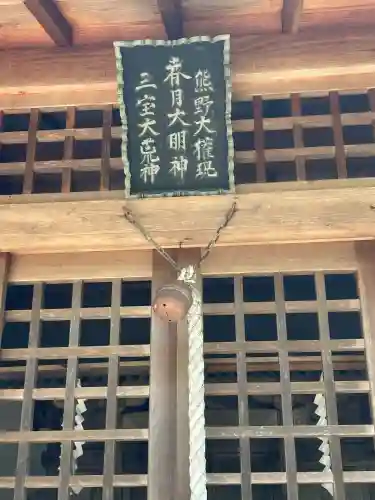 熊野大権現
春日大明神
三宝大荒神